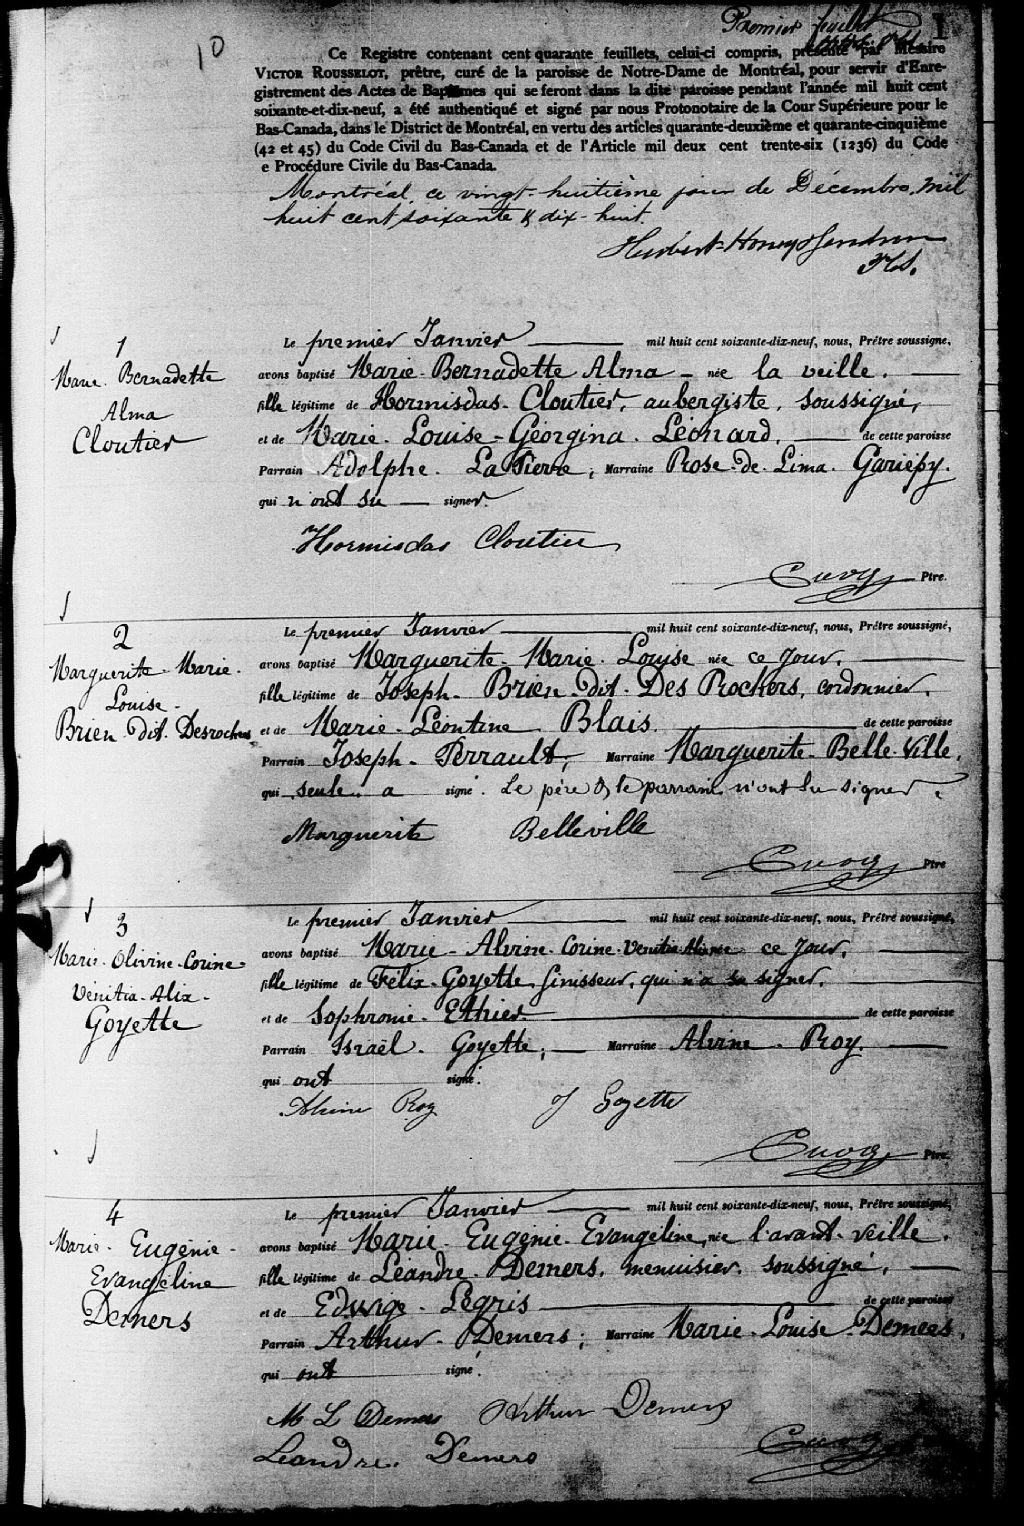 Premier feuillet
10
1
Ce Registre contenant cent quarante feuillets, celui-ci compris, présenté par Messire
VICTOR ROUSSELOT, prêtre, curé de la paroisse de Notre-Dame de Montréal, pour servir d'Enre-
gistrement des Actes de Baptêmes qui se feront dans la dite paroisse pendant l'année mil huit cent
soixante-et-dix-neuf, a été authentiqué et signé par nous Protonotaire de la Cour Supérieure pour le
Bas-Canada, dans le District de Montréal, en vertu des articles quarante-deuxième et quarante-cinquième
(42 et 45) du Code Civil du Bas-Canada et de l'Article mil deux cent trente-six (1236) du Code
e Procédure Civile du Bas-Canada.
Montréal, ce vingt-huitième jour de Décembre, mil
huit cent soixante & dix-huit.
1
Marie. Bernadette
Alma
Cloutier
Le premier Janvier mil huit cent soixante-dix-neuf, nous, Prêtre soussigné,
avons baptisé Marie-Bernadette Alma - née la veille.
fille légitime de Hormisdas-Cloutier, aubergiste, soussigné,
et de Marie-Louise-Géorgina. Léonard, de cette paroisse
Parrain Adolphe. LaPierre; Marraine Rose-de-Lima. Gariépy.
qui n'ont su signer.
Hormisdas Cloutier
Cuoq Ptre.
2
Marguerite-Marie-
Louise-
Brien-dit-Desrochers
Le premier Janvier mil huit cent soixante-dix-neuf, nous, Prêtre soussigné,
avons baptisé Marguerite-Marie-Louise née ce jour,
fille légitime de Joseph-Brien-dit-Des Rochers, cordonnier,
et de Marie-Léontine Blais. de cette paroisse
Parrain Joseph-Perrault; Marraine Marguerite-Belle-Ville,
qui seule a signé. Le père & le parrain n'ont su signer.
Marguerite Belleville
Cuoq Ptre
3
Marie-Olivine-Corine-
Vénitia-Alix-
Goyette
Le premier Janvier mil huit cent soixante-dix-neuf, nous, Prêtre soussigné,
avons baptisé Marie-Alvine-Corine-Venitia-Alix née ce jour,
fille légitime de Félix-Goyette, finisseur, qui n'a su signer,
et de Sophronie-Ethier de cette paroisse
Parrain Israël-Goyette; Marraine Alvine-Roy.
qui ont signé.
Alvine Roy J Goyette
Cuoq Ptre.
4
Marie-Eugénie-
Evangéline
Demers
Le premier Janvier mil huit cent soixante-dix-neuf, nous, Prêtre soussigné,
avons baptisé Marie-Eugénie-Evangéline, née l'avant-veille.
fille légitime de Léandre-Demers, menuisier, soussigné,
et de Edwige-Légris de cette paroisse
Parrain Arthur-Demers; Marraine Marie-Louise-Demers,
qui ont signé.
M L Demers Arthur Demers
Léandre Demers
Cuoq